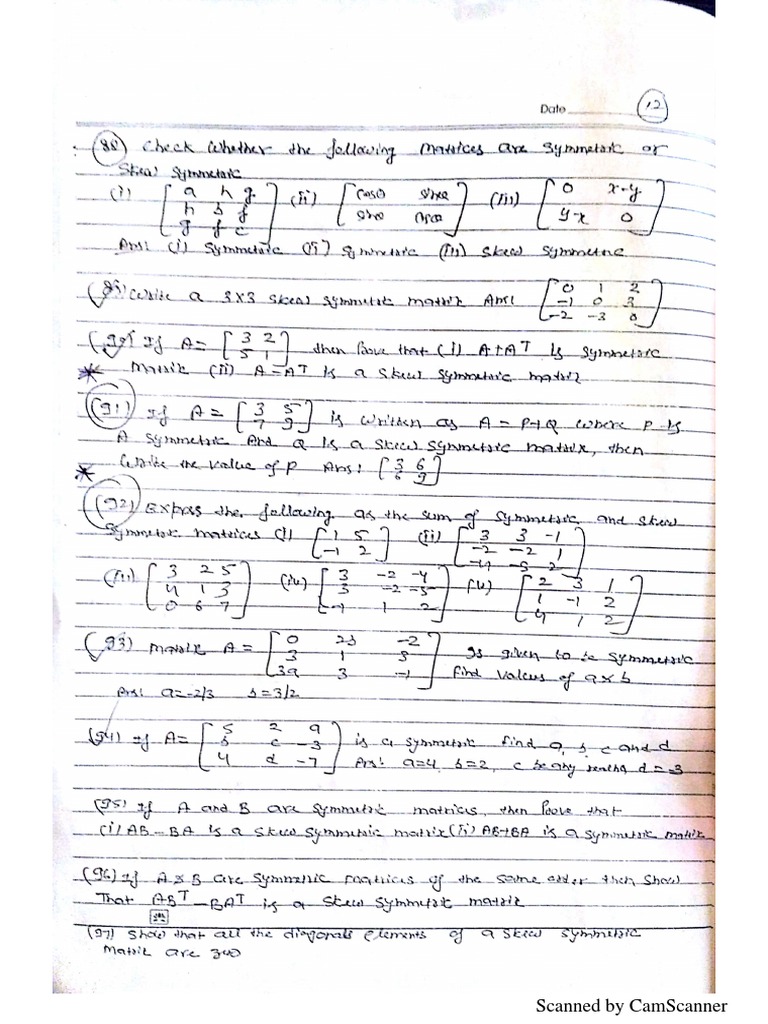 Date
12
(88) Check whether the following matrices are symmetric or
Skew symmetric
(i) [a h g; h b f; g f c] (ii) [cosθ sinθ; sinθ cosθ] (iii) [0 x-y; y-x 0]
Ans: (i) Symmetric (ii) symmetric (iii) skew symmetric
(89) Write a 3x3 skew symmetric matrix Ans: [0 1 2; -1 0 3; -2 -3 0]
(90) If A = [3 2; 5 1] then prove that (i) A+Aᵀ is symmetric
matrix (ii) A-Aᵀ is a skew symmetric matrix
(91) If A = [3 5; 7 9] is written as A = P+Q where P is
A symmetric And Q is a skew symmetric matrix, then
write the value of P Ans: [3 6; 6 9]
(92) Express the following as the sum of symmetric and skew
symmetric matrices (i) [1 5; -1 2] (ii) [3 3 -1; -2 -2 1; -4 -5 2]
(iii) [3 2 5; 4 1 3; 0 6 7] (iv) [3 -2 -4; 3 -2 -5; -1 1 2] (v) [2 3 1; 1 -1 2; 4 1 2]
(93) Matrix A = [0 2b -2; 3 1 3; 3a 3 -1] is given to be symmetric
find values of a & b
Ans: a=-2/3 b=3/2
(94) If A = [5 2 a; b c -3; 4 d -7] is a symmetric find a, b, c and d
Ans: a=4, b=2, c be any d=-3
(95) If A and B are symmetric matrices, then prove that
(i) AB-BA is a skew symmetric matrix (ii) AB+BA is a symmetric matrix
(96) If A & B are symmetric matrices of the same order then show
That ABᵀ-BAᵀ is a skew symmetric matrix
(97) Show that all the diagonals elements of a skew symmetric
matrix are zero
Scanned by CamScanner